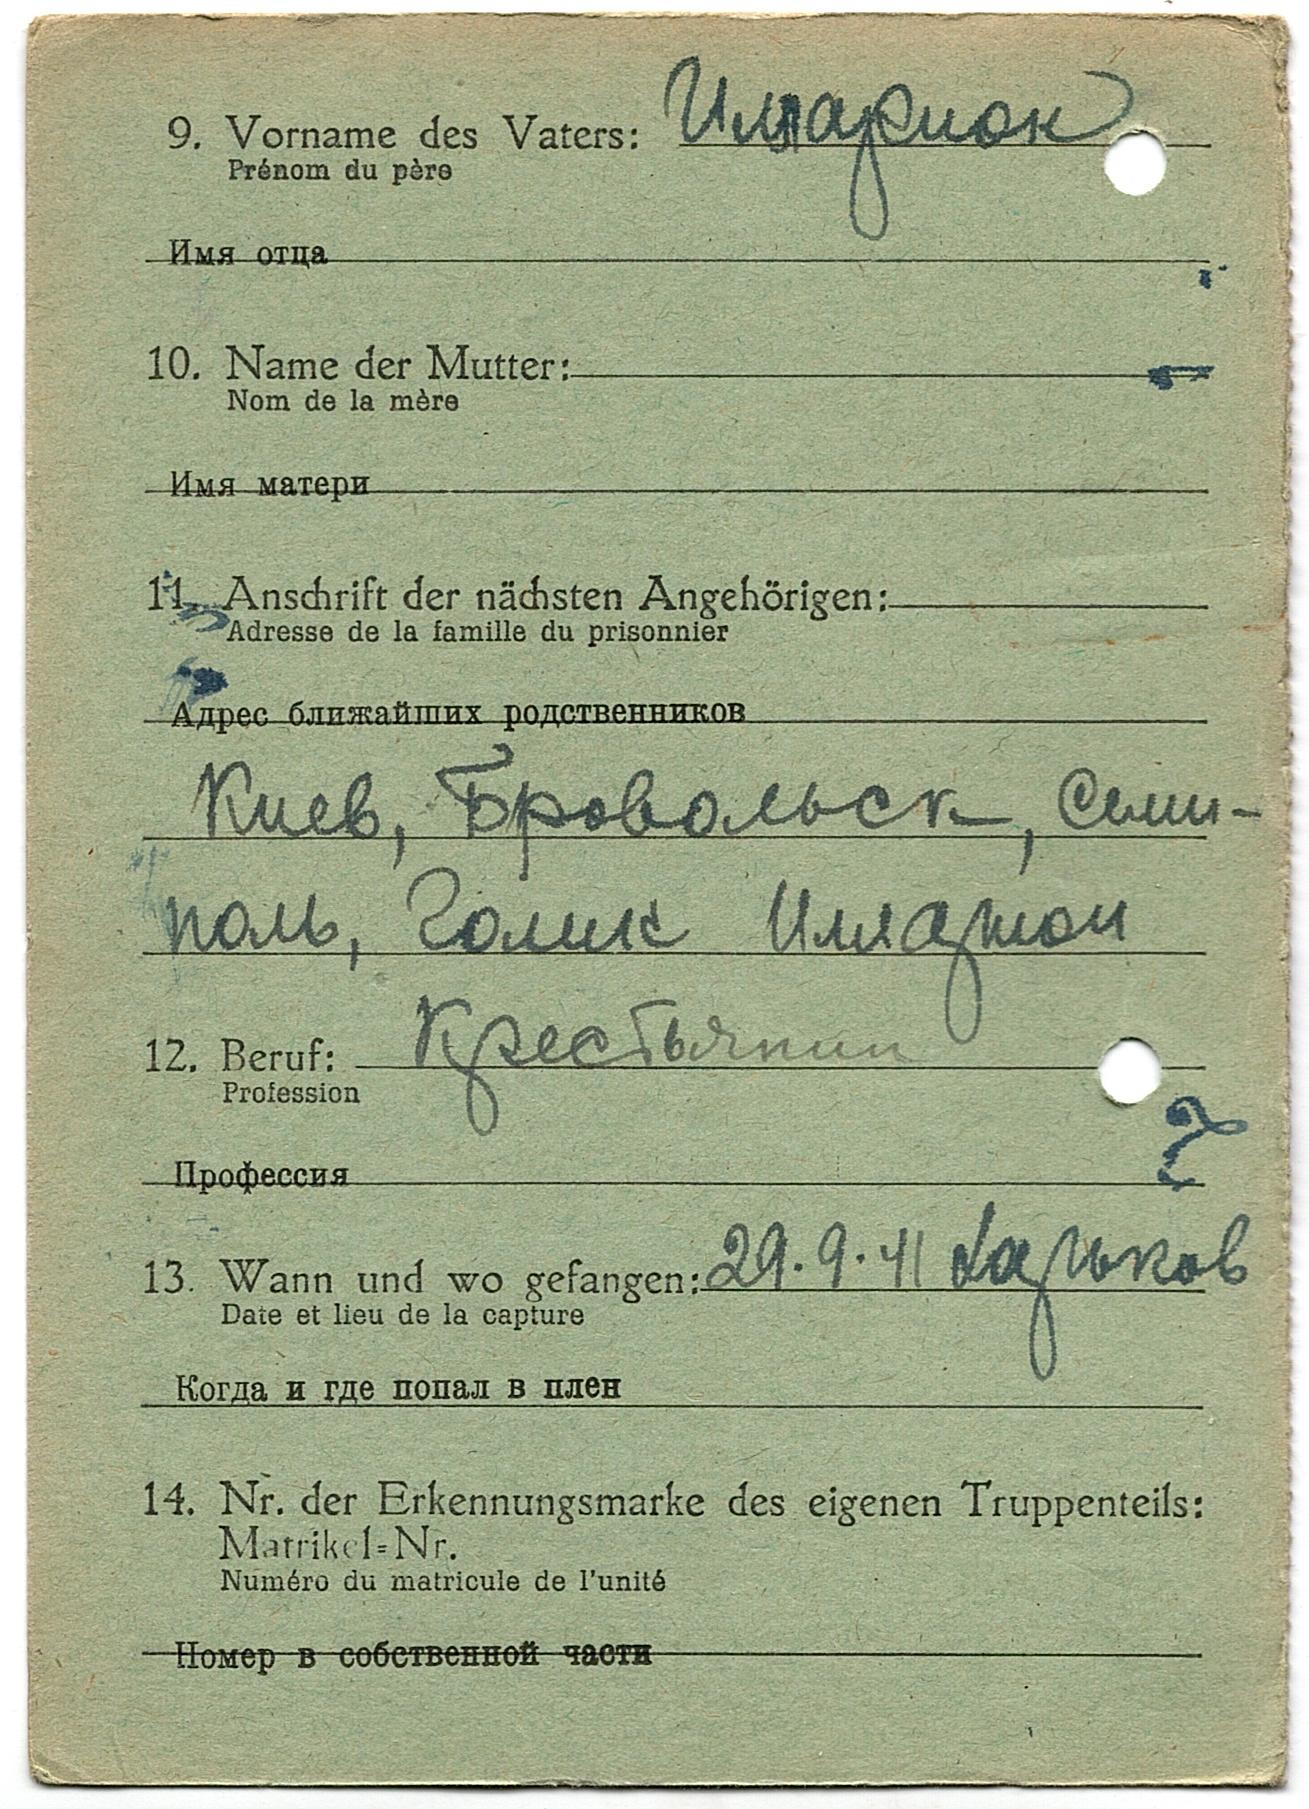 9. Vorname des Vaters: Илларион
Prénom du père
Имя отца
10. Name der Mutter:
Nom de la mère
Имя матери
11. Anschrift der nächsten Angehörigen:
Adresse de la famille du prisonnier
Адрес ближайших родственников
Киев, Бровольск, Семи-
поль, Голик Илларион
12. Beruf: Крестьянин
Profession
Профессия
13. Wann und wo gefangen: 29.9.41 Харьков
Date et lieu de la capture
Когда и где попал в плен
14. Nr. der Erkennungsmarke des eigenen Truppenteils:
Matrikel=Nr.
Numéro du matricule de l'unité
Номер в собственной части